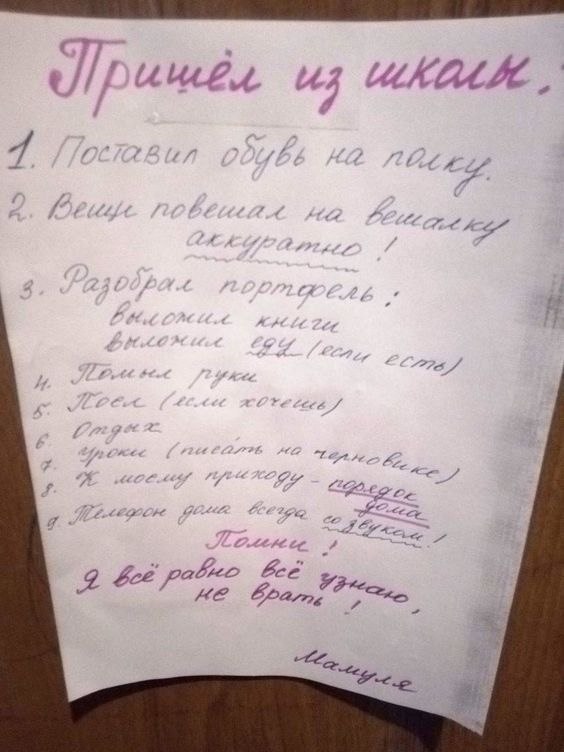 Пришёл из школы:
1. Поставил обувь на полку.
2. Вещи повешал на вешалку
аккуратно!
3. Разобрал портфель:
выложил книги
выложил еду (если есть)
4. Помыл руки
5. Поел (если хочешь)
6. Отдых
7. уроки (писать на черновике)
8. К моему приходу - порядок
дома
9. Телефон дома всегда со звуком!
Помни!
Я всё равно всё узнаю,
не врать!
Мамуля